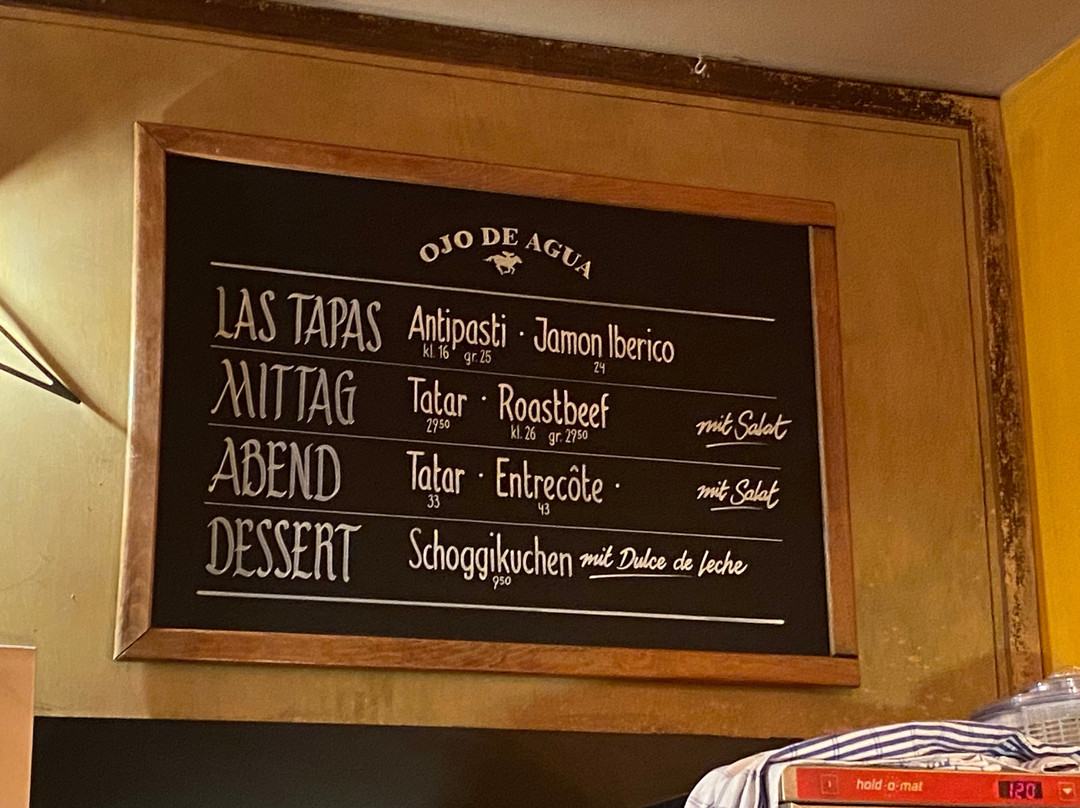 OJO DE AGUA
LAS TAPAS Antipasti · Jamon Iberico
kl. 16 gr. 25 24
MITTAG Tatar · Roastbeef mit Salat
29⁵⁰ kl. 26 gr. 29⁵⁰
ABEND Tatar · Entrecôte · mit Salat
33 43
DESSERT Schoggikuchen mit Dulce de Leche
9⁵⁰
hold-o-mat 120